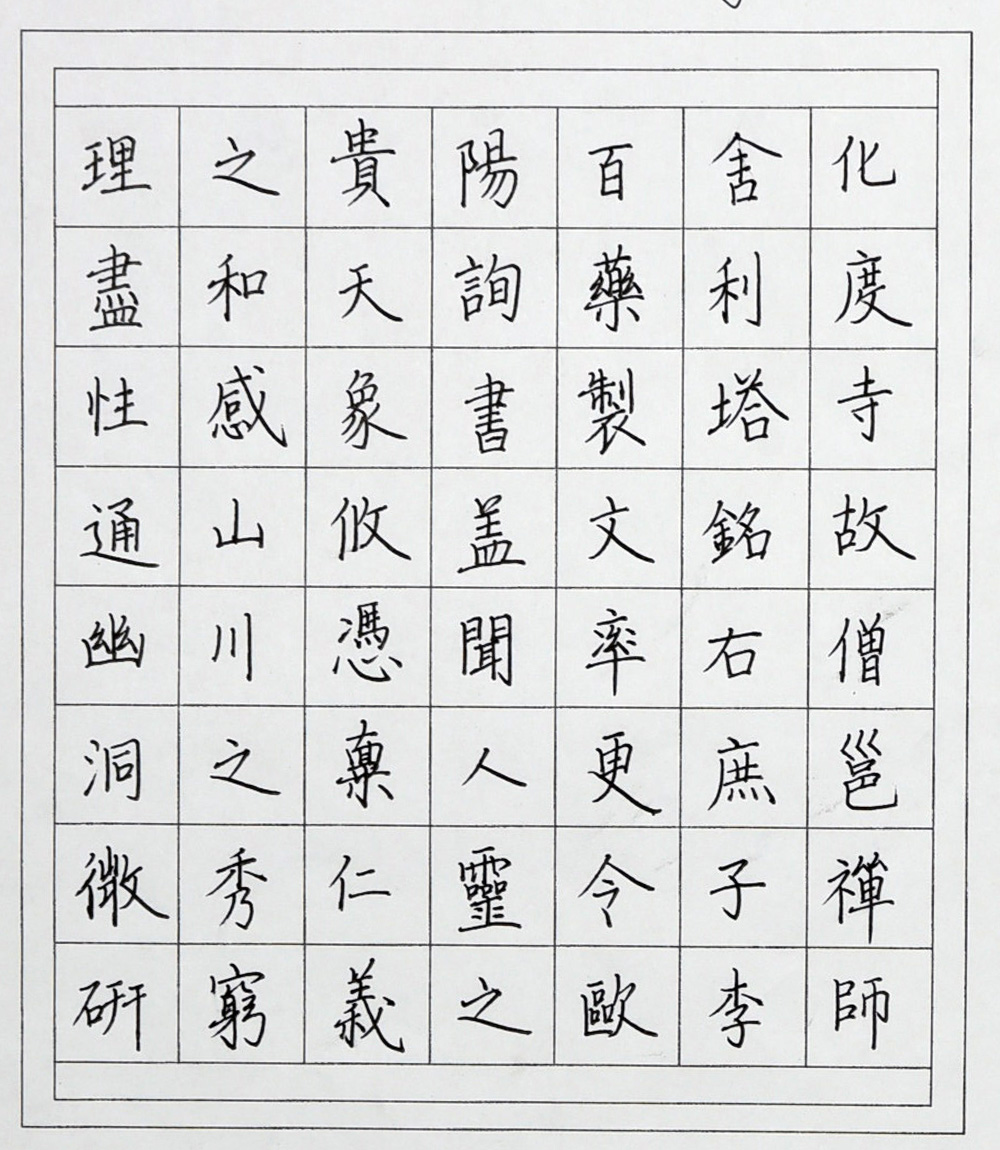 化度寺故僧邕禪師
舍利塔銘右庶子李
百藥製文率更令歐
陽詢書盖聞人靈之
貴天象攸憑禀仁義
之和感山川之秀窮
理盡性通幽洞微研